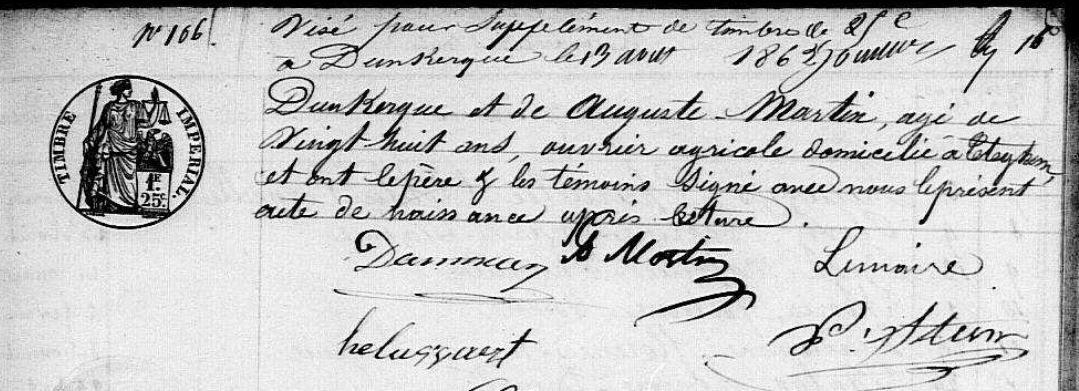 Nº 166
Visé pour Supplément de timbre de 25 c
a Dunkerque le 13 aout 186
Dunkerque et de Auguste Martin, agé de
Vingt huit ans, ouvrier agricole domicilié à
et ont le père & les témoins Signé avec nous le présent
acte de naissance après lecture.
TIMBRE IMPERIAL.
1F
25c
A Martin Lemaire